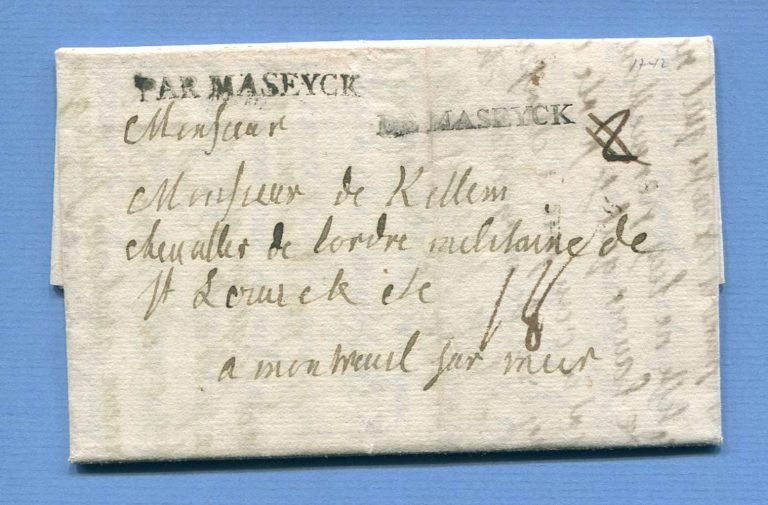 PAR MASEYCK
DE MASEYCK
8
Monsieur
Monsieur de Killem
chevallier de lordre militaire de
st Louis
18
a montreuil sur mer